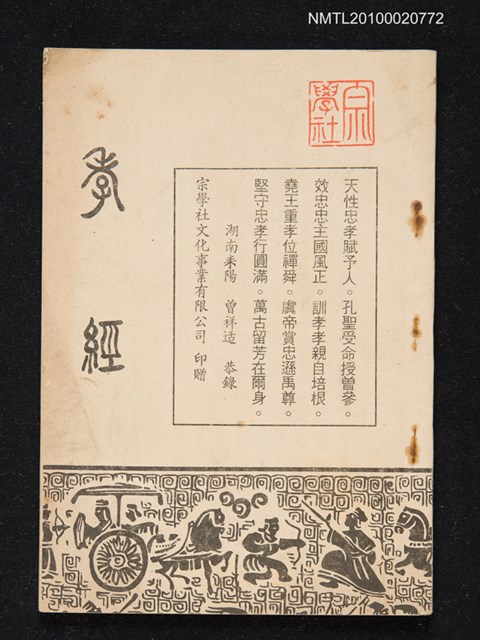 NMTL20100020772
宗學社
天性忠孝賦予人。孔聖受命授曾參。
效忠忠主國風正。訓孝孝親自培根。
堯王重孝位禪舜。虞帝賞忠遜禹尊。
堅守忠孝行圓滿。萬古留芳在爾身。
湖南耒陽 曾祥适 恭錄
宗學社文化事業有限公司 印贈
孝經